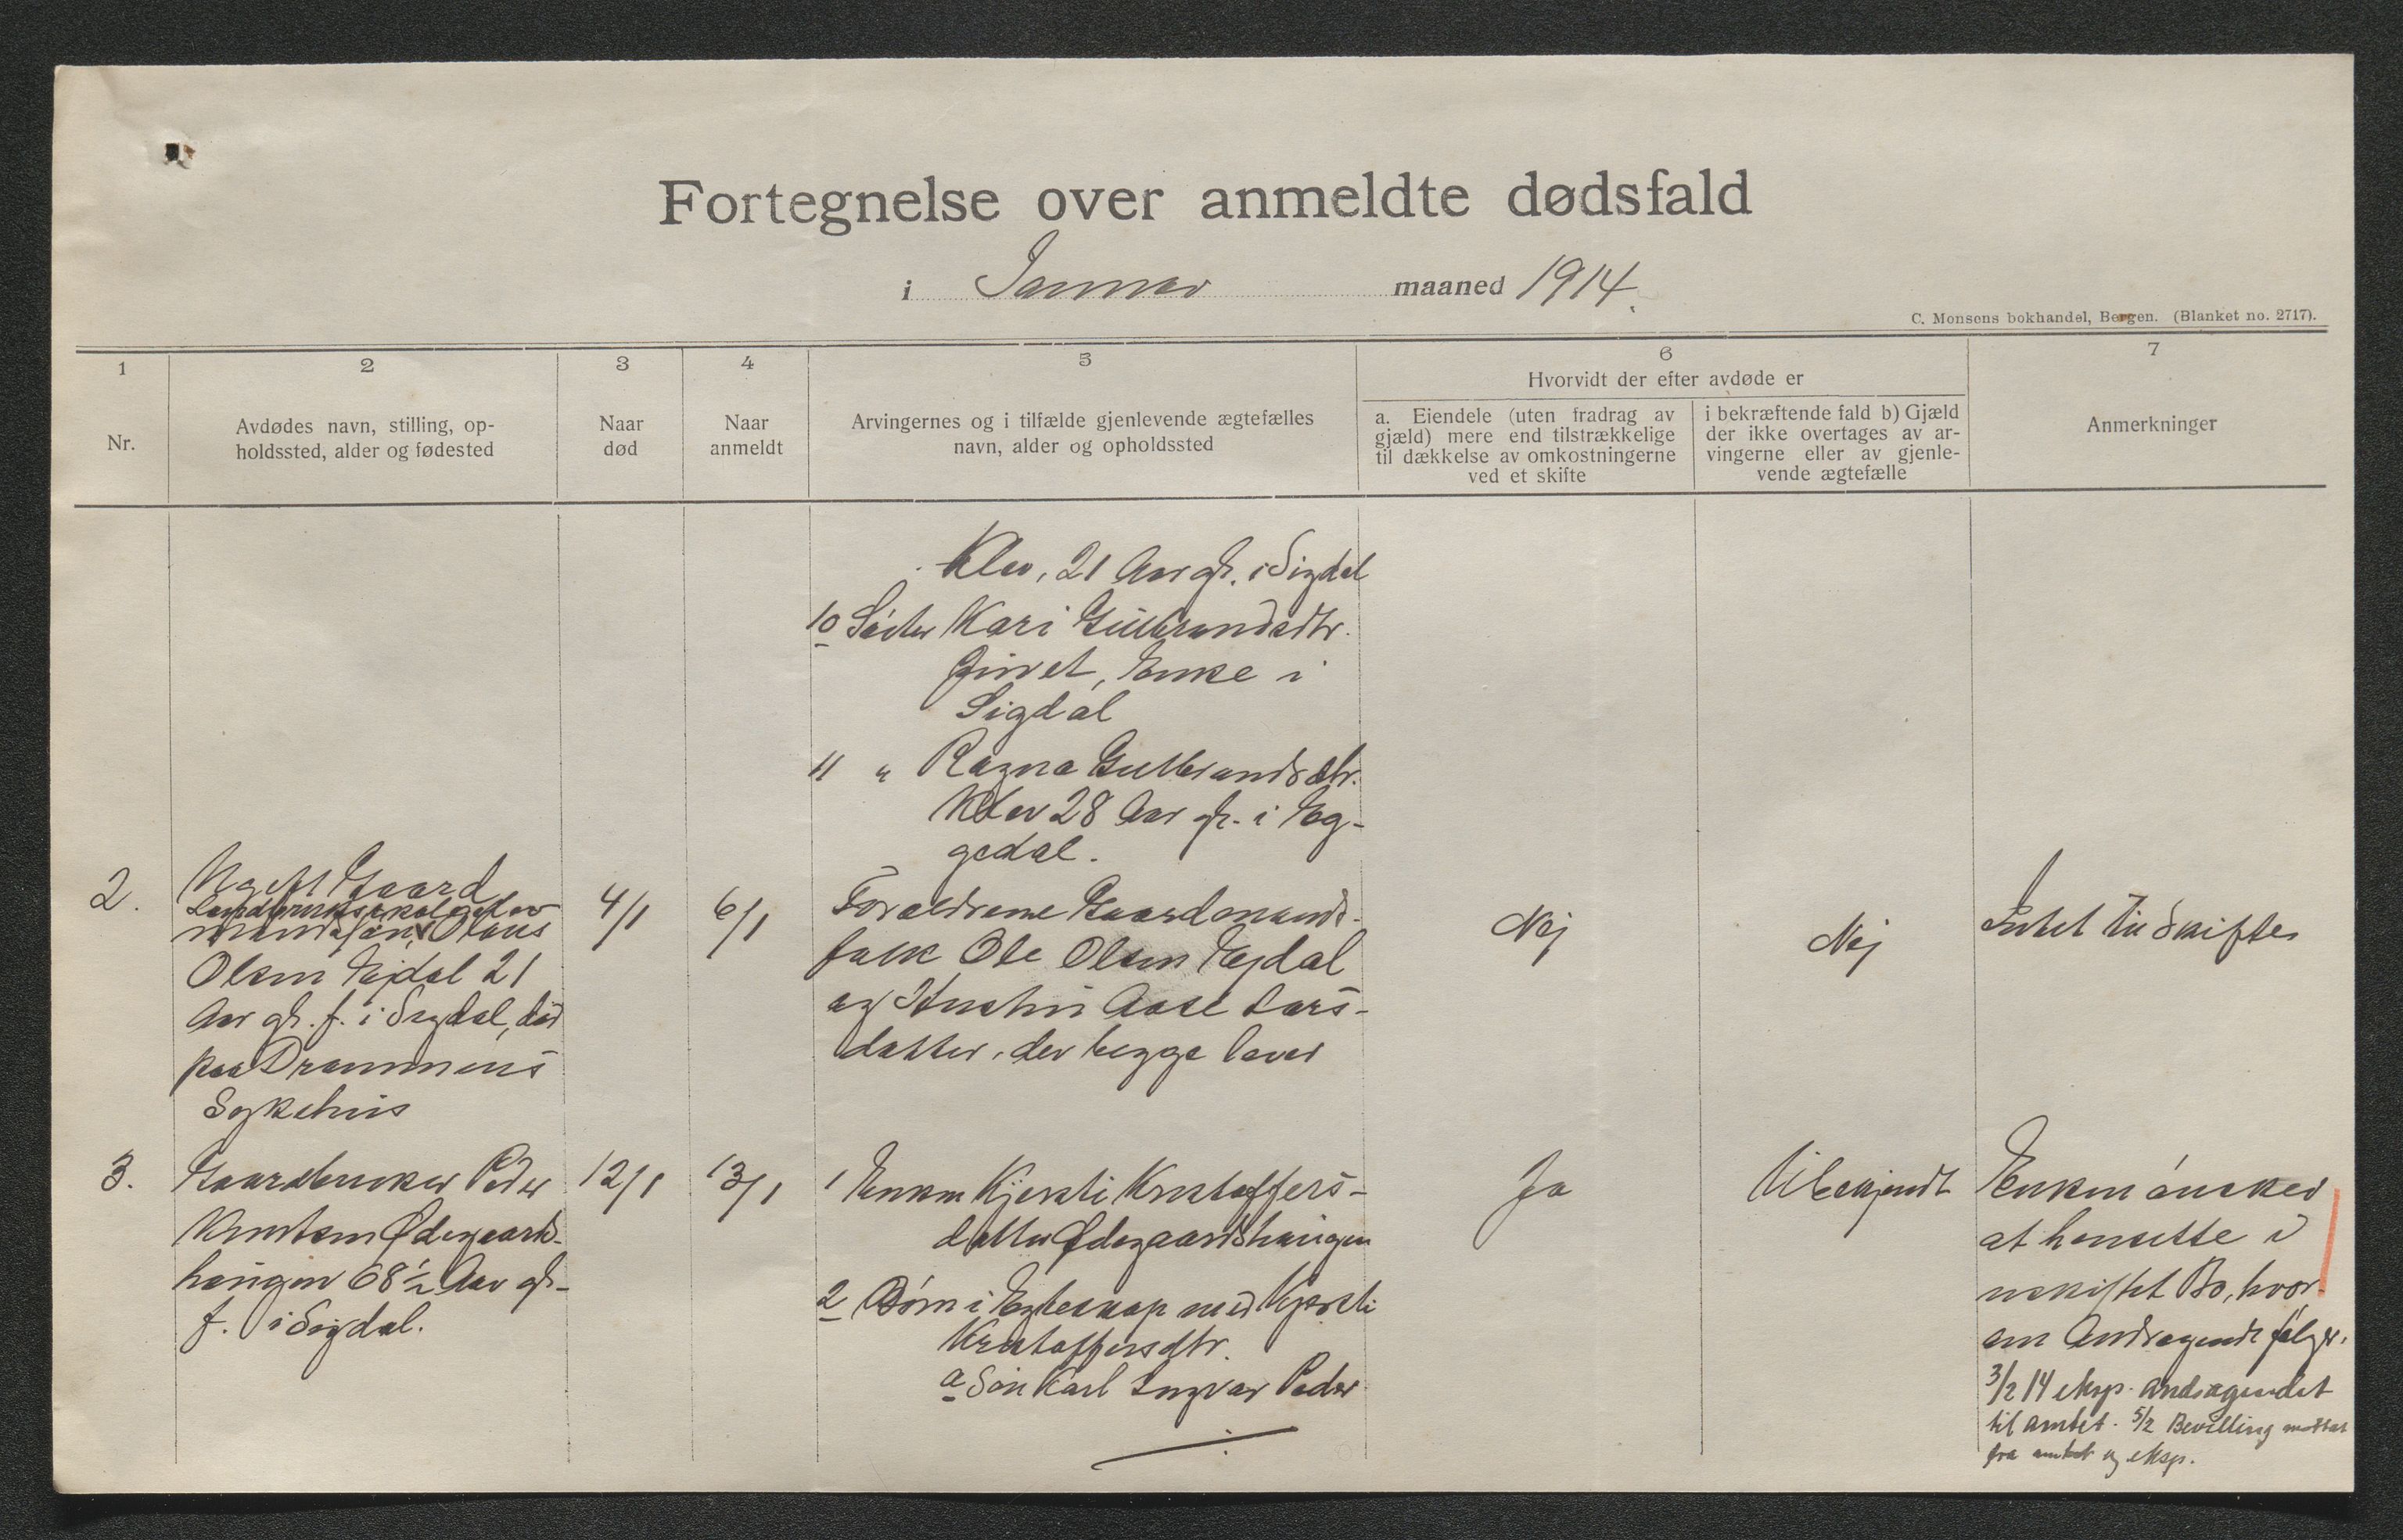 Fortegnelse over anmeldte dødsfald
i Januar maaned 1914.
C. Monsens bokhandel, Bergen. (Blanket no. 2717).
1
Nr.
2
Avdødes navn, stilling, op-
holdssted, alder og fødested
3
Naar
død
4
Naar
anmeldt
5
Arvingernes og i tilfælde gjenlevende ægtefælles
navn, alder og opholdssted
6
Hvorvidt der efter avdøde er
a. Eiendele (uten fradrag av
gjæld) mere end tilstrækkelige
til dækkelse av omkostningerne
ved et skifte
i bekræftende fald b) Gjæld
der ikke overtages av ar-
vingerne eller av gjenle-
vende ægtefælle
7
Anmerkninger
Klev, 21 Aar gl. i Sigdal
10 Søster Kari Gulbrandsdtr.
Enke i
Sigdal
11 " Ragna Gulbrandsdtr.
Klev 28 Aar gl. i Eg-
gedal.
2.
Ugift Gaard
mandssøn Olaus
Olsen Ejdal 21
Aar gl. f. i Sigdal, død
paa Drammens
Sykehus
4/1
6/1
Forældrene Gaardmands-
folk Ole Olsen Ejdal
og Hustru Aase Lars-
datter, der begge lever
Nej
Nej
Intet til Skifte
3.
Gaardbruker Peder
Knutsen Ødegaards-
haugen 68 1/2 Aar gl.
f. i Sigdal.
12/1
13/1
1 Enken Kjersti Kristoffers-
datter Ødegaardshaugen
2 Børn i Egteskap med Kjersti
Kristoffersdtr.
a Søn Karl Ingvar Peder
Ja
Ubekjendt
Enken ønsker
at hensitte i
uskiftet Bo, hvor-
om Andragende følger.
3/2 14 eksp. andragendet
til amtet. 5/2 Bevilling mottat
fra amtet og eksp.